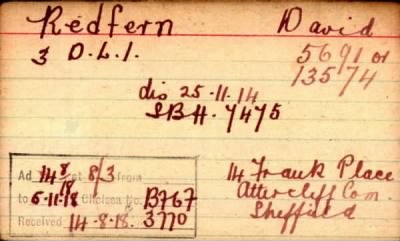 Redfern David
3 D.L.I. 5691 or
13574
dis 25.11.14
SBH. 7475
14 8/18 8/3 from
to 5.11.18 Chelsea No. B767
Received 14.8.18. 3770
14 Frank Place
Attercliff Com.
Sheffield